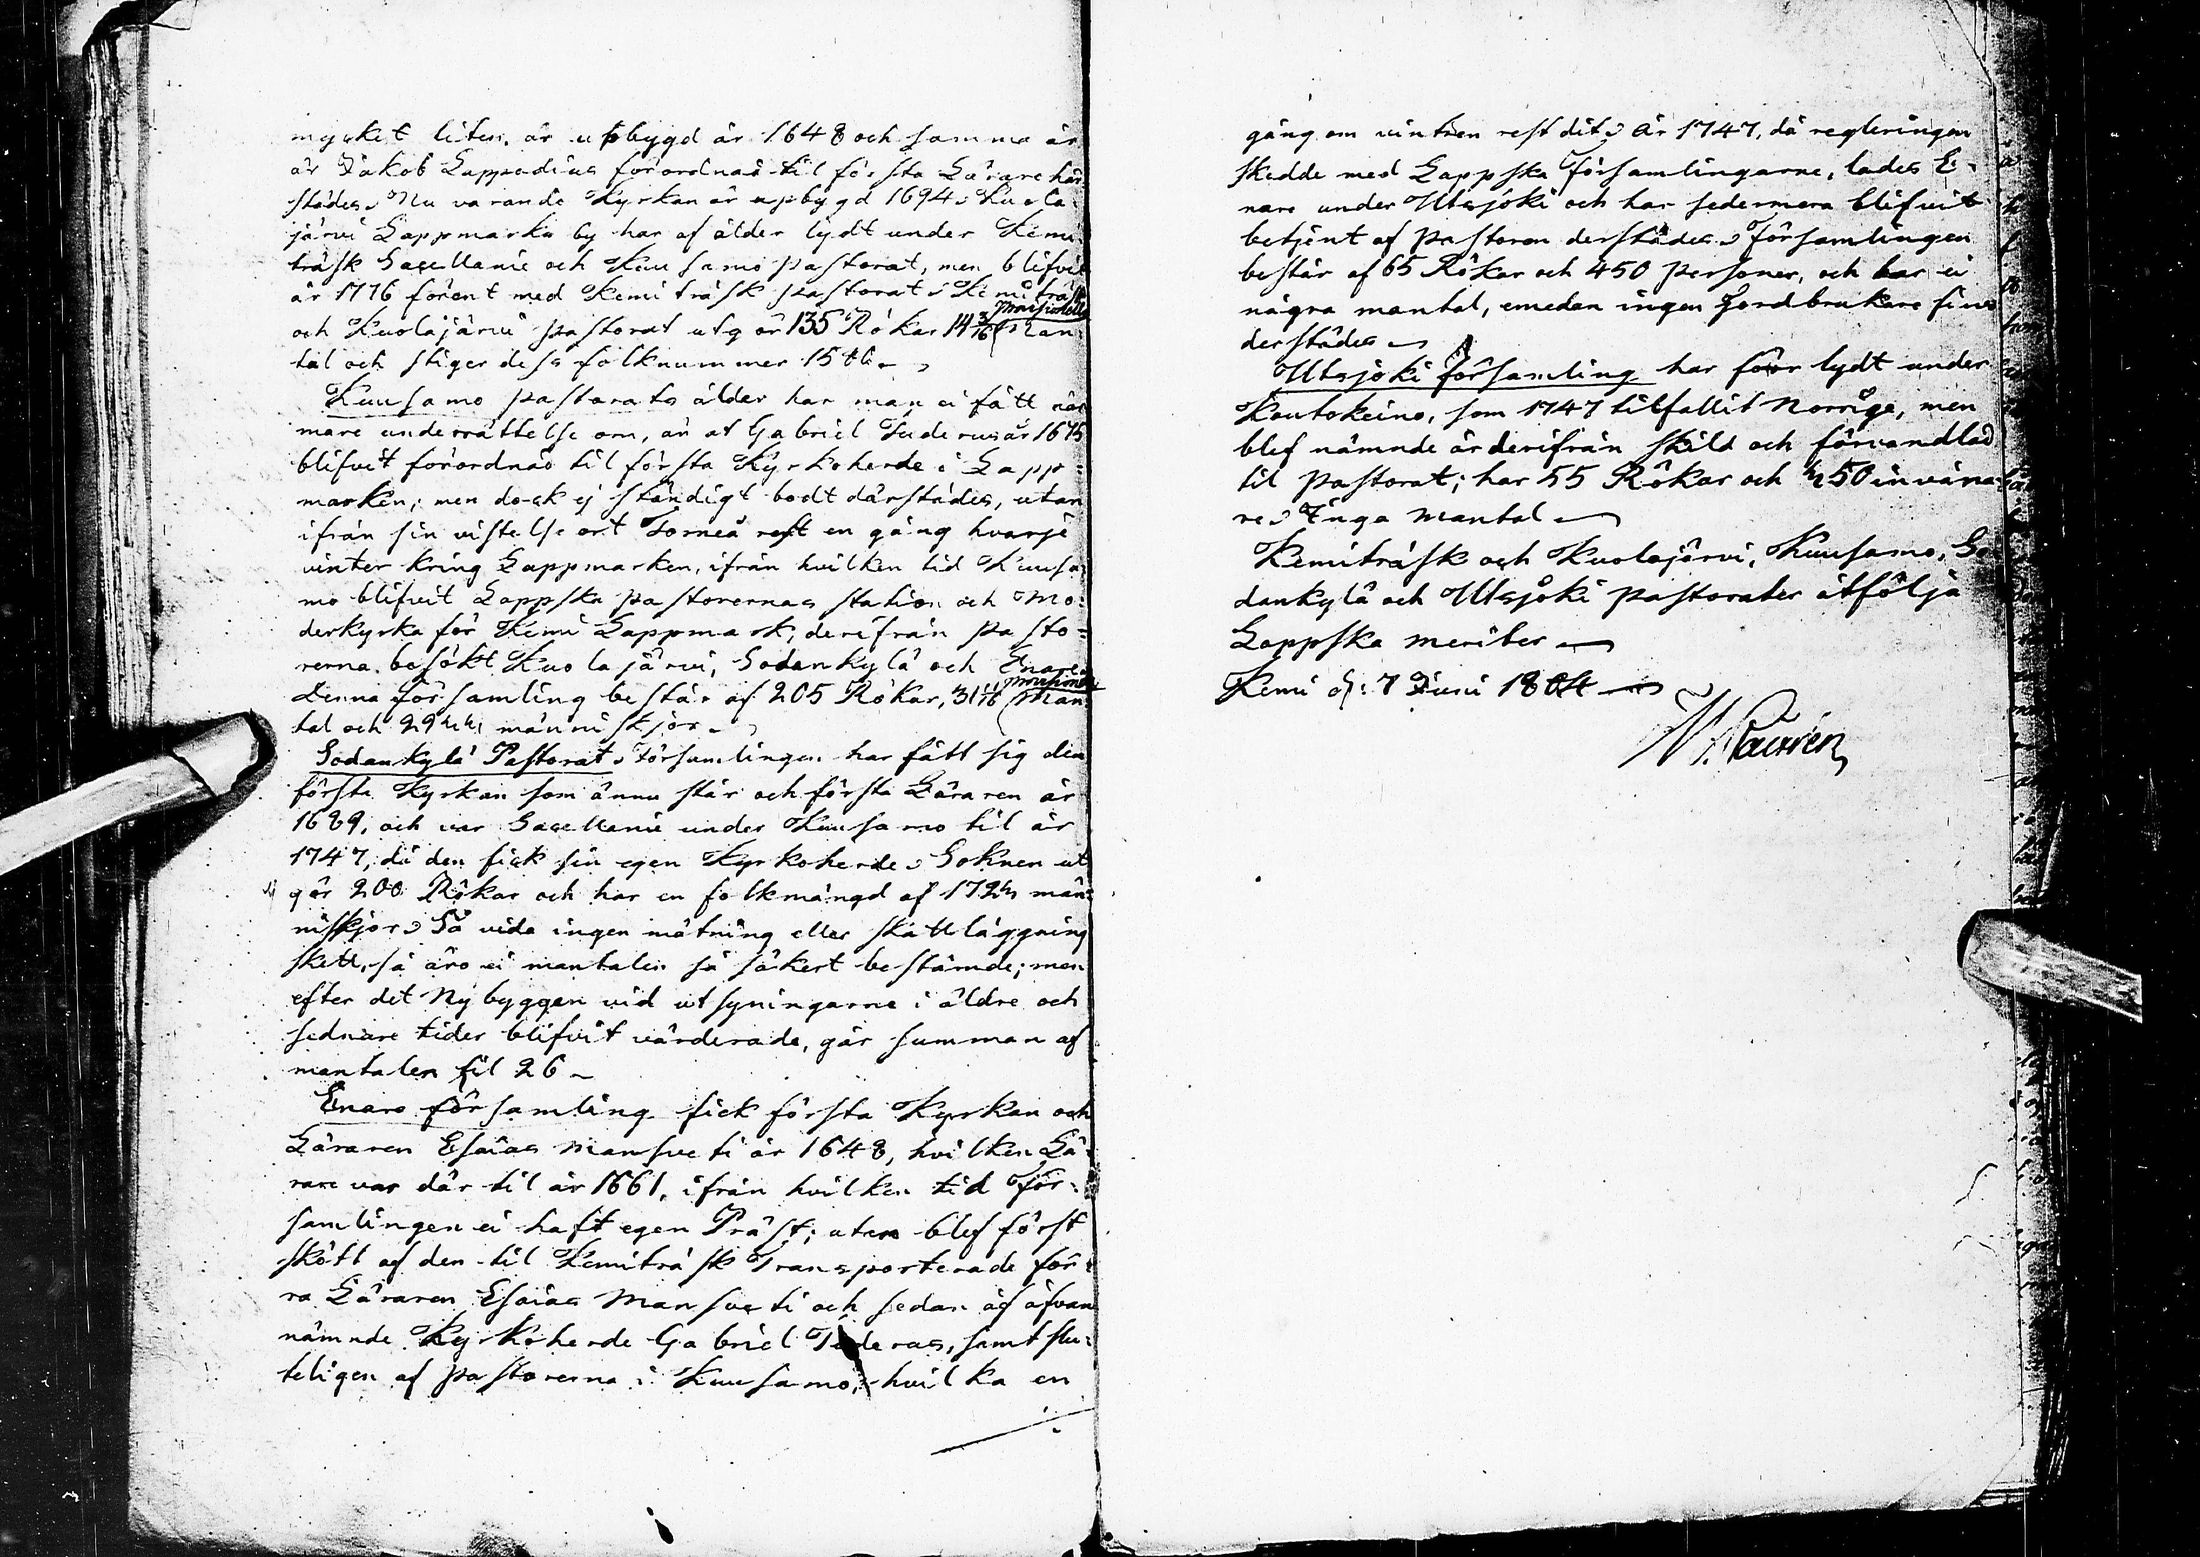 mycket liten, är upbygd år 1648 och samma år
är Jakob Lappodius förordnad til första Lärare här
städes. Nu varande Kyrkan är upbygd 1694. Kuola-
järvi Lappmarks by har af ålder lydt under Kemi
träsk Sacellanie och Kuusamo pastorat, men blifvit
år 1776 förent med Kemi träsk pastorat. Kemi träsk
provisionella
och Kuolajärvi pastorat utgör 135 Rökar 14 3/16 Man
tal och stiger dess folknummer
Kuusamo pastorats ålder har man ei fått när
mare underrättelse om, än at Gabriel Tuderus år 1675
blifvit förordnad til första Kyrkoherde i Lapp=
marken; men dock ej ständigt bodt därstädes, utan
ifrån sin vistelse ort Torneå rest en gång hvarje
vinter kring Lappmarken, ifrån hvilken tid Kuusa
mo blifvit Lappska pastorernas station och Mo:
derkyrka för Kemi Lappmark, derifrån pasto=
rerna besökt Kuolajärvi, Sodankylä och Enare.
provisionella
Denna församling består af 205 Rökar, 31 Man
tal och människjor.
Sodankylä Pastorat. Församlingen har fått sig den
första Kyrkan som ännu står och första Läraren år
1689, och var Sacellanie under Kuusamo til år
1747, då den fick sin egen Kyrkoherde. Soknen ut
gör 200 Rökar och har en folkmängd af 1724 män=
niskjor. Så vida ingen mätning eller skattläggning
skett, så äro ei mantalen så säkert bestämde; men
efter det Nybyggen vid utsyningarne i äldre och
sednare tider blifvit värderade, går summan af
mantalen til 26
Enare församling fick första Kyrkan och
Läraren Esaias Mansveti år 1648, hvilken Lä-
rare var där til år 1661, ifrån hvilken tid För=
samlingen ei haft egen Präst; utan blef först
skött af den til Kemiträsk Transporterade för=
ra Läraren Esaias Mansveti och sedan af åfvan
nämnde Kyrkoherde Gabriel Tuderus, samt slu=
teligen af pastorerna i Kuusamo, hvilka en
gång om vintren rest dit. År 1747, då regleringen
skedde med Lappska Församlingarne, lades E-
nare under Utsjoki och har sedermera blifvit
betjent af pastoren derstädes. Församlingen
består af 65 Rökar och 450 personer, och har ei
några mantal, emedan ingen Jordbrukare fins
derstädes
Utsjoki församling har förr lydt under
Koutokeino, som 1747 tilfallit Norrige, men
blef nämnde år derifrån skild och förvandlad
til pastorat; har 55 Rökar och 450 invåna
re. Inga mantal
Kemiträsk och Kuolajärvi, Kuusamo, So
dankylä och Utsjoki pastorater åtfölja
Lappska meriter
Kemi d: 7 Juni 1804